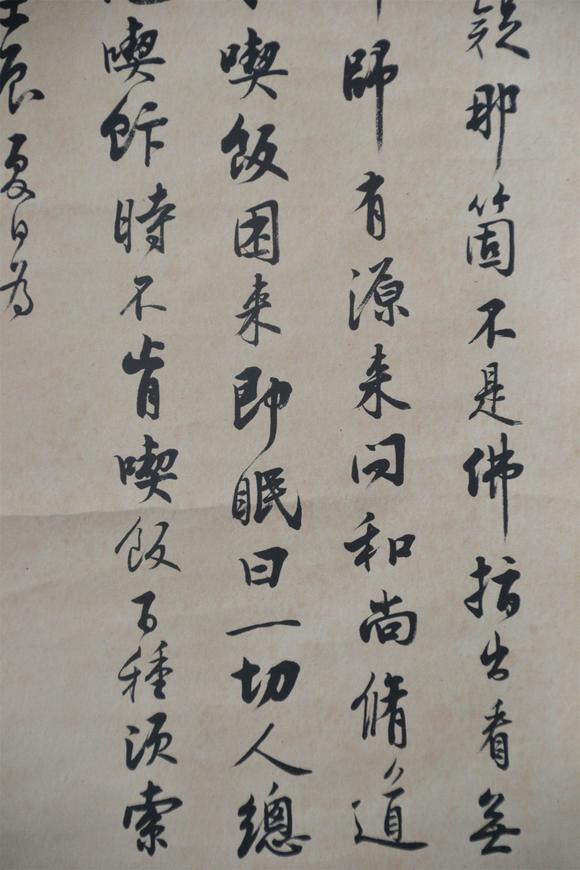 疑那箇不是佛指出看無
師有源来問和尚脩道
喫飯困来即眠曰一切人總
喫飰時不肯喫飯百種須索
壬辰夏日为